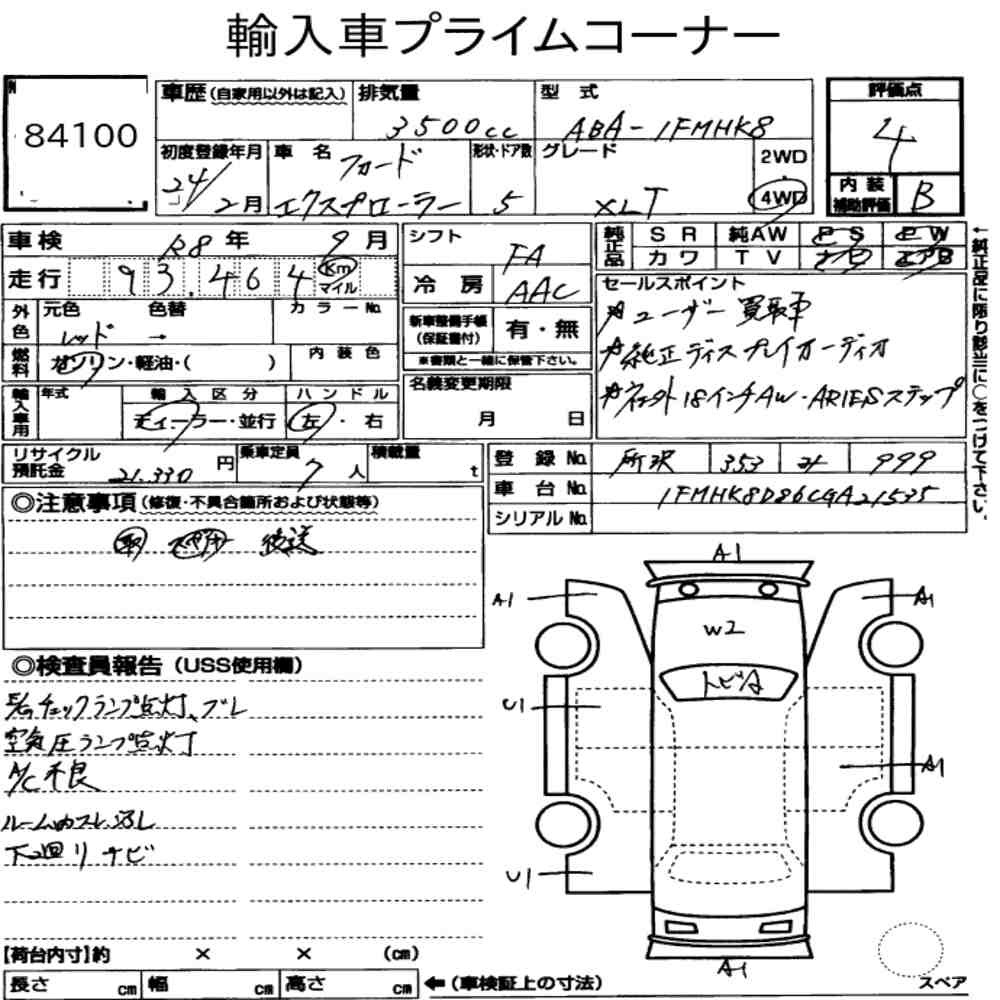 輸入車プライムコーナー
84100
車歴(自家用以外は記入) 排気量 3500cc 型式 ABA-1FMHK8
初度登録年月 24/2月 車名 フォード エクスプローラー 形状・ドア数 5 グレード XLT 2WD・4WD
評価点 4
内装補助評価 B
車検 R8年 9月
走行 93,464 Km マイル
シフト FA
冷房 AAC
純正品 SR 純AW PS PW
カワ TV ナビ エアB
外色 元色 レッド 色替 → カラーNo
燃料 ガソリン・軽油・( ) 内装色
新車整備手帳(保証書付) 有・無
※書類と一緒に保管下さい。
輸入車用 年式 輸入区分 ディーラー・並行 ハンドル 左・右
名義変更期限 月 日
セールスポイント
ユーザー買取車
純正ディスプレイオーディオ
社外18インチAW・ARIESステップ
←純正品に限り該当に○をつけて下さい。
リサイクル預託金 21,330円 乗車定員 7人 積載量 t
登録No 所沢 353 949
車台No 1FMHK8D86CGA21535
シリアルNo
◎注意事項(修復・不具合箇所および状態等)
取 スペアキー 後送
◎検査員報告(USS使用欄)
チェックランプ点灯、ブレ
空気圧ランプ点灯
A/C不良
ルーム内スレ、汚レ
下廻リサビ
A1
A1 A1
W2
トビA
U1
A1
U1
A1
スペア
【荷台内寸】約 × × (cm)
長さ cm 幅 cm 高さ cm ←(車検証上の寸法)